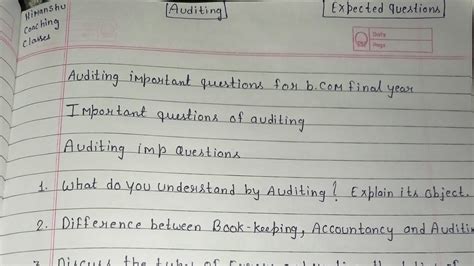 Himanshu
Coaching
Classes
Auditing
Expected Questions
Date
Page
Auditing important questions for b.com final year
Important questions of auditing
Auditing imp Questions
1. What do you understand by Auditing? Explain its object.
2. Difference between Book-keeping, Accountancy and Auditin
Discuss the